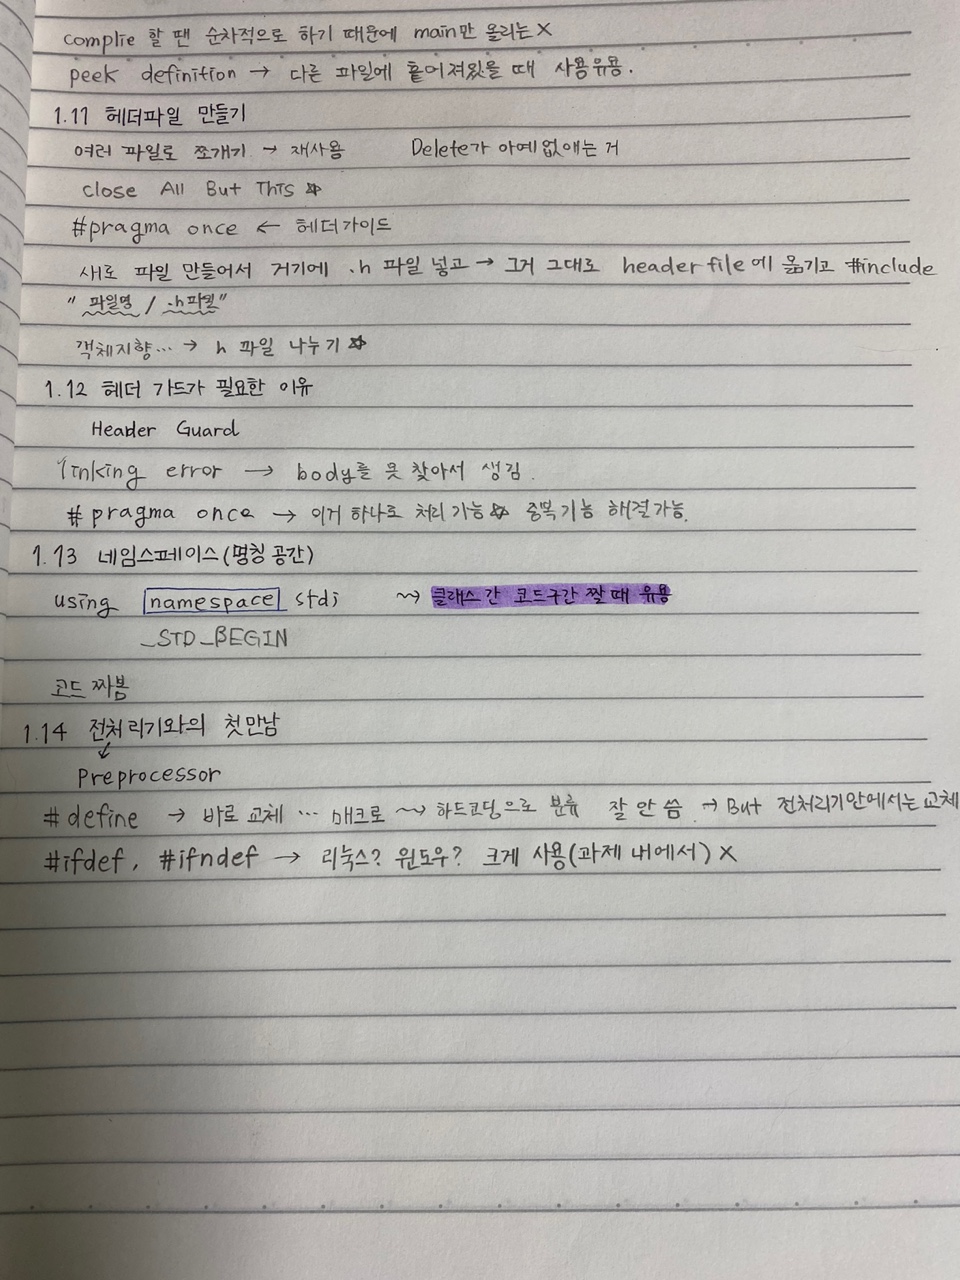 complie 할 땐 순차적으로 하기 때문에 main만 올리는 X
peek definition → 다른 파일에 흩어져있을 때 사용유용.
1.11 헤더파일 만들기
여러 파일로 쪼개기 → 재사용 Delete가 아예 없애는 거
close All But This ☆
#pragma once ← 헤더가이드
새로 파일 만들어서 거기에 .h 파일 넣고 → 그거 그대로 header file에 옮기고 #include
" 파일명 / .h파일"
객체지향... → h 파일 나누기 ☆
1.12 헤더 가드가 필요한 이유
Header Guard
linking error → body를 못 찾아서 생김.
# pragma once → 이거 하나로 처리 가능 ☆ 중복기능 해결가능.
1.13 네임스페이스(명칭 공간)
using namespace std; ~> 클래스 간 코드구간 짤 때 유용
_STD_BEGIN
코드 짜봄
1.14 전처리기와의 첫만남
↓
Preprocessor
#define → 바로 교체 ... 매크로 ~> 하드코딩으로 분류 잘 안 씀 → But 전처리기안에서는 교체
#ifdef, #ifndef → 리눅스? 윈도우? 크게 사용(과제 내에서) X